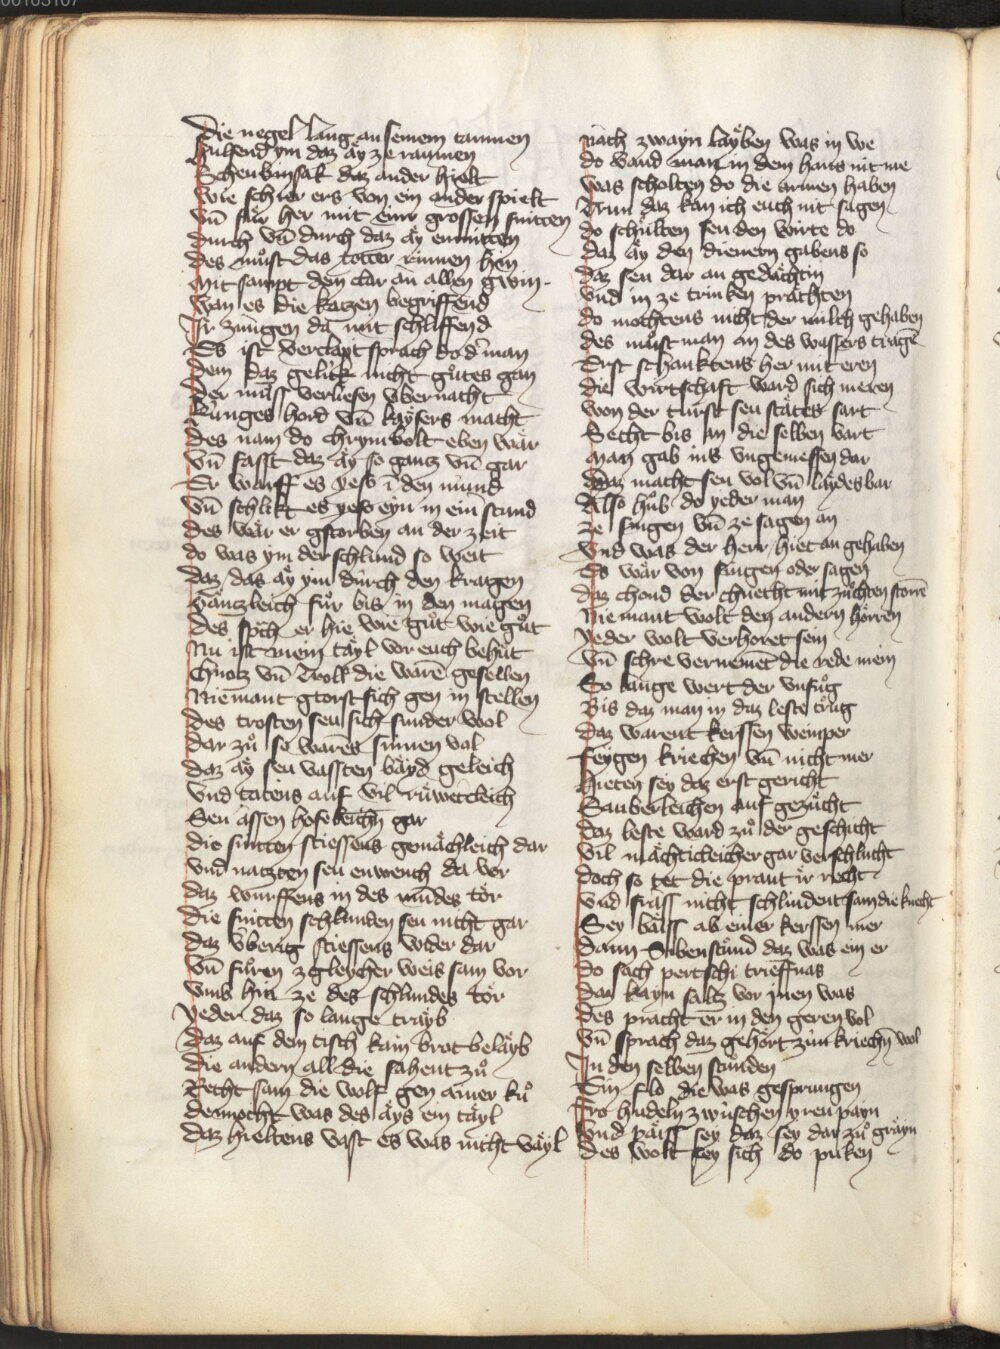 00103107
Die negel lang an seinem taumen
Hulfend ym daz äy ze raumen
Scheubinsak daz ander hielt
Wie schier ers von ein ander spielt
Vn̄ fůr her mit einr grossen snitten
Durch vn̄ durch daz äy enmitten
Des můst das totter rinnen hin
Mit sampt dem clar an allen gwin
Wan es die katzen begriffend
Ir zungen da mit schliffend
Es ist verclapt sprach do der man
Dem daz gelük nicht gůtes gan
Der můss verliesen vber nacht
Künges hord vn̄ kaysers macht
Des nam do chrymbolt eben war
Vn̄ fasst daz äy so gantz vn̄ gar
Er warff es yeso in den mund
Vn̄ schlikt es yeso eyn in ein stund
Des wär er gstorben an der zeit
Do was ym der schlund so weit
Daz das äy ym durch den kragen
Gäntzleich fůr bis in den magen
Des sprach er hie wie gůt wie gůt
Nu ist mein täyl vor euch behůt
Chnotz vn̄ Troll die warē gesellen
Niemant gtorst sich gen in stellen
Des trosten seu sich sunder wol
Dar zů so warēs sinnen vol
Daz äy seu vassten bäyd geleich
Vnd tatens auf vil rüwecleich
Seu assen hofeleichn̄ gar
Die snitten stiessens gemächleich dar
Vnd natzten seu enwench da vor
Daz wurffens in des mūdes tor
Die snitten schlunden seu nicht gar
Daz vberig stiessens wider dar
Vn̄ fůren zgleycher weis sam vor
Vmb hin ze des schlundes tor
Yeder daz so lange trayb
Daz auf dem tisch kain brot beläyb
Die andern all die sahent zů
Recht sam die wolf gen ainer ků
Dennocht was des äys ein täyl
Daz hieltens vast es was nicht väyl
Nach zwayn läyben was in we
Do vand man in dem haus nit me
Was scholten do die armen haben
Nun daz kan ich euch nit sagen
Do schulten seu den wirte do
Daz äy den dienern gabens so
Daz seu dar an gedächtin
Vnd in ze trinken prächten
Do mochtens nicht der milch gehaben
Des můst man an des wassers tragē
Erst schanktens her mit eren
Die wirtschaft ward sich meren
Won der turst seu stätes sart
Secht bis an die selben vart
Man gab ins vngemessen dar
Daz macht seu vol vn̄ läydesbar
Also hůb do yeder man
Ze singen vn̄ ze sagen an
Vnd was der herr hiet an gehaben
Es wär von singen oder sagen
Daz chond der chnecht mit züchten storrē
Niemant wolt den andern hörren
Yeder wolt verhoret sein
Vn̄ schre vernemēt die rede mein
So lange wert der vnfůg
Bis daz man in daz leste trůg
Daz warent kerssen wemper
Feygen kriechen vn̄ nicht mer
Hieten sey daz erst gericht
Sauberleichen auf gezücht
Daz leste ward zů der geschicht
Vil mächticleicher gar verschlucht
Doch so tet die praut ir recht
Vnd frass nicht schlindent sam die knecht
Sey bäiss ab einer kerssen mer
Dann Sibenstund daz was ein er
Do sach pertschi trieffnas
Daz kayn saltz vor ynen was
Des pracht er in den geren vol
Vn̄ sprach daz gehört zun kriechn̄ wol
In den selben stunden
Ein flo die was gesprungen
Fro hudeln zwüschen yreu payn
Vnd päiss sey daz sey dar zů grayn
Des wolt sey sich do puken